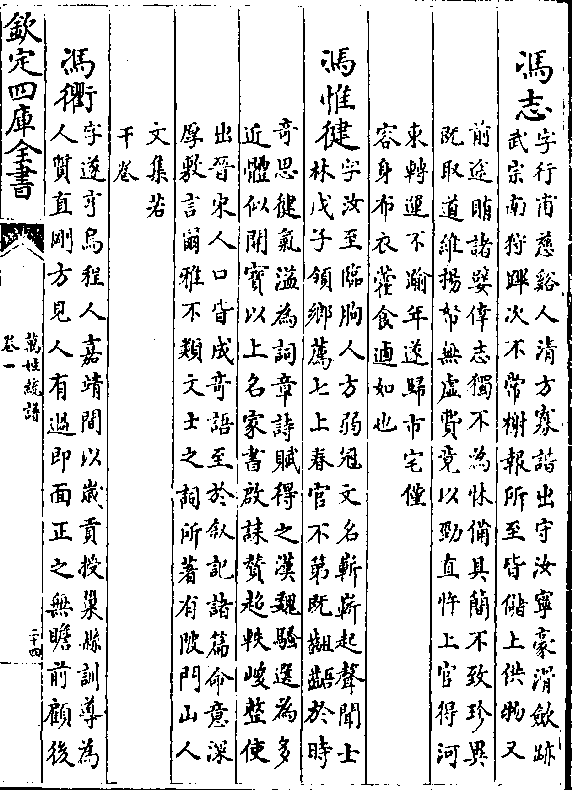 馮志字行甫慈谿人清方寡諧出守汝寧豪滑斂跡
武宗南狩蹕次不常檄報所至皆儲上供物又
前途賄諸嬖倖志獨不為怵備具簡不致珍異
既取道維揚帑無虛費竟以勁直忤上官得河
東轉運不踰年遂歸市宅僅
容身布衣藿食適如也
馮惟健字汝至臨朐人方弱冠文名嶄嶄起聲聞士
林戊子領鄉薦七上春官不第既齟齬於時
奇思健氣溢為詞章詩賦得之漢魏騷選為多
近體似開寶以上名家書啟誄贊超軼峻整使
出晉宋人口皆成奇語至於敘記諸篇命意深
厚敷言爾雅不類文士之詞所著有陂門山人
文集若
干卷
馮衢字遂亨烏程人嘉靖間以歲貢授巢縣訓導為
人質直剛方見人有過即面正之無瞻前顧後
欽定四庫全書
萬姓統譜
卷一
二十四